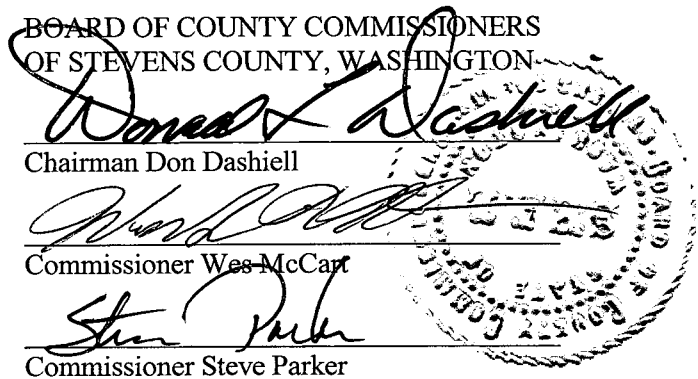 BOARD OF COUNTY COMMISSIONERS
OF STEVENS COUNTY, WASHINGTON
Donald L Dashiell
Chairman Don Dashiell
Commissioner Wes McCart
Steve Parker
Commissioner Steve Parker
BOARD OF COUNTY
STATE OF
SEAL